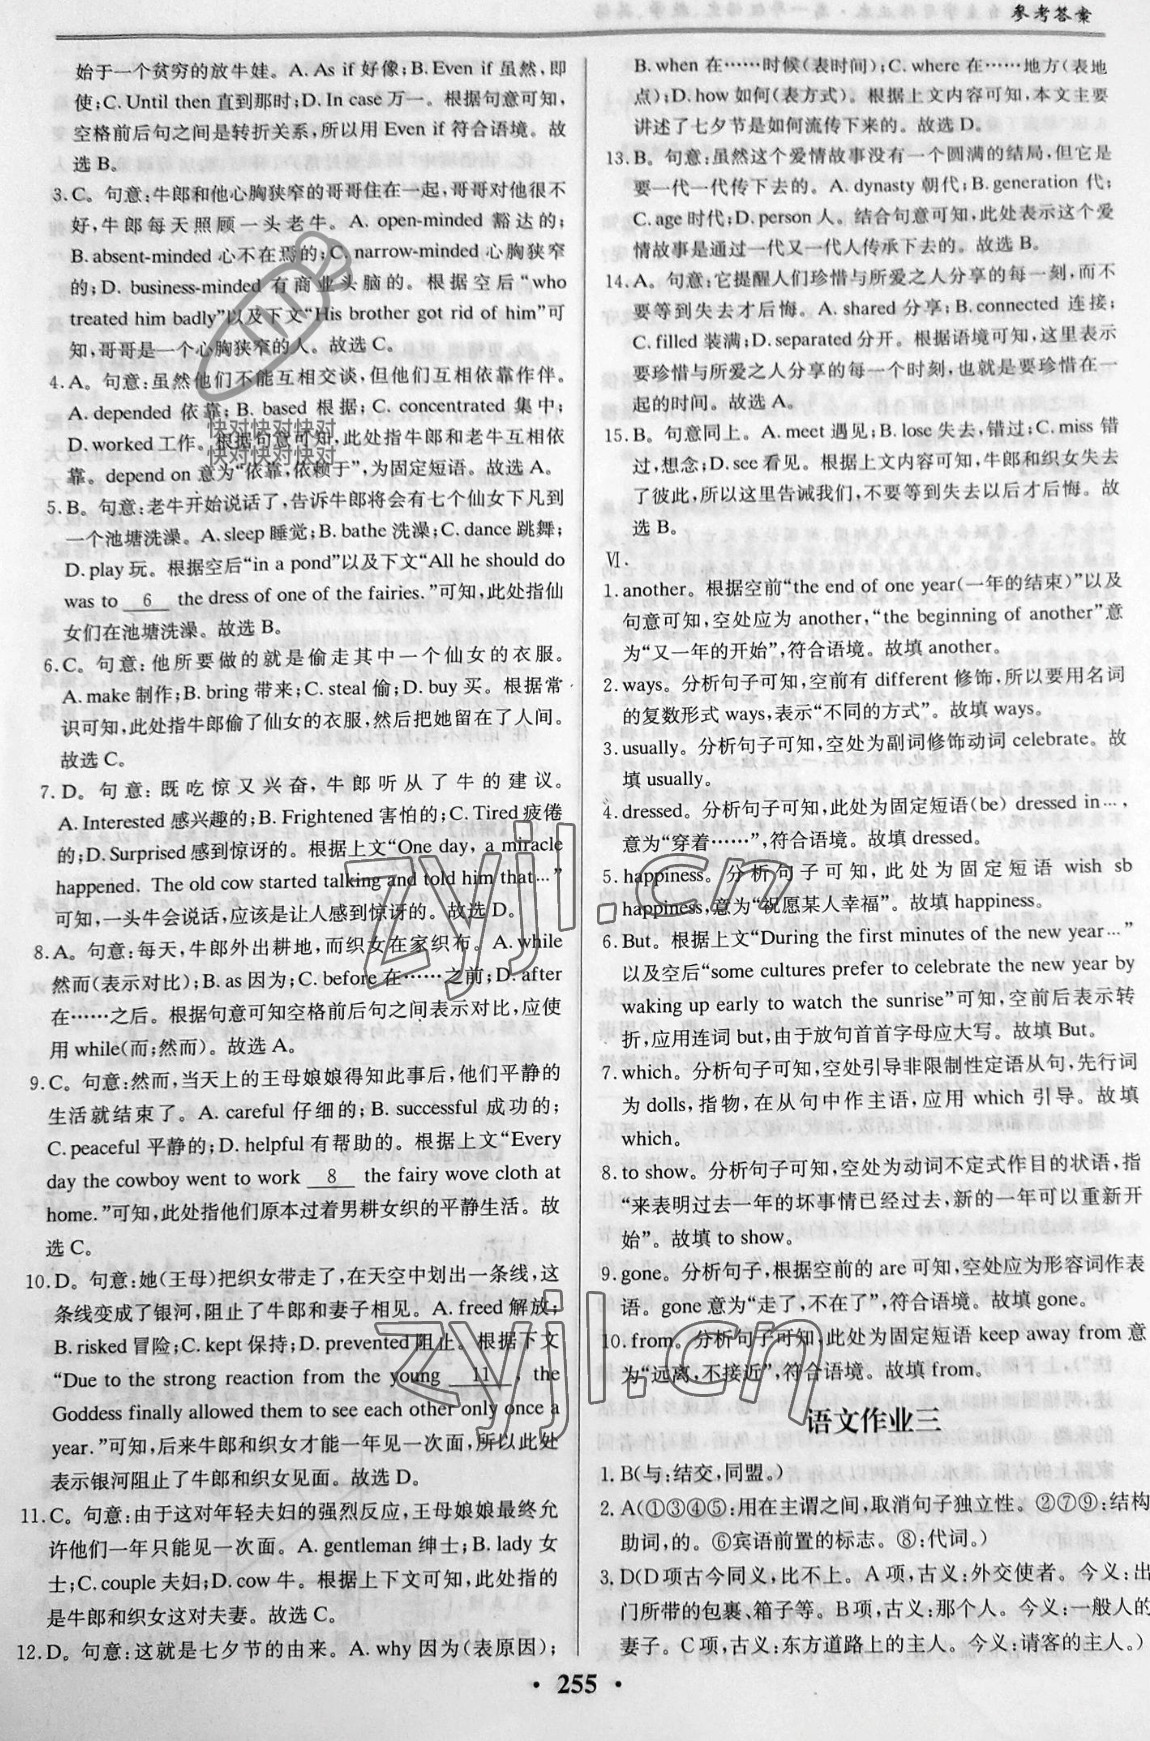 参考答案
始于一个贫穷的放牛娃。A. As if 好像;B. Even if 虽然,即
使;C. Until then 直到那时;D. In case 万一。根据句意可知,
空格前后句之间是转折关系,所以用 Even if 符合语境。故
选 B。
3. C。句意:牛郎和他心胸狭窄的哥哥住在一起,哥哥对他很不
好,牛郎每天照顾一头老牛。A. open-minded 豁达的;
B. absent-minded 心不在焉的;C. narrow-minded 心胸狭窄
的;D. business-minded 有商业头脑的。根据空后“who
treated him badly”以及下文“His brother got rid of him”可
知,哥哥是一个心胸狭窄的人。故选 C。
4. A。句意:虽然他们不能互相交谈,但他们互相依靠作伴。
A. depended 依靠;B. based 根据;C. concentrated 集中;
D. worked 工作。根据句意可知,此处指牛郎和老牛互相依
靠。depend on 意为“依靠,依赖于”,为固定短语。故选 A。
5. B。句意:老牛开始说话了,告诉牛郎将会有七个仙女下凡到
一个池塘洗澡。A. sleep 睡觉;B. bathe 洗澡;C. dance 跳舞;
D. play 玩。根据空后“in a pond”以及下文“All he should do
was to 6 the dress of one of the fairies.”可知,此处指仙
女们在池塘洗澡。故选 B。
6. C。句意:他所要做的就是偷走其中一个仙女的衣服。
A. make 制作;B. bring 带来;C. steal 偷;D. buy 买。根据常
识可知,此处指牛郎偷了仙女的衣服,然后把她留在了人间。
故选 C。
7. D。句意:既吃惊又兴奋,牛郎听从了牛的建议。
A. Interested 感兴趣的;B. Frightened 害怕的;C. Tired 疲倦
的;D. Surprised 感到惊讶的。根据上文“One day, a miracle
happened. The old cow started talking and told him that…”
可知,一头牛会说话,应该是让人感到惊讶的。故选 D。
8. A。句意:每天,牛郎外出耕地,而织女在家织布。A. while
然而(表示对比);B. as 因为;C. before 在……之前;D. after
在……之后。根据句意可知空格前后句之间表示对比,应使
用 while(而;然而)。故选 A。
9. C。句意:然而,当天上的王母娘娘得知此事后,他们平静的
生活就结束了。A. careful 仔细的;B. successful 成功的;
C. peaceful 平静的;D. helpful 有帮助的。根据上文“Every
day the cowboy went to work 8 the fairy wove cloth at
home.”可知,此处指他们原本过着男耕女织的平静生活。故
选 C。
10. D。句意:她(王母)把织女带走了,在天空中划出一条线,这
条线变成了银河,阻止了牛郎和妻子相见。A. freed 解放;
B. risked 冒险;C. kept 保持;D. prevented 阻止。根据下文
“Due to the strong reaction from the young 11 , the
Goddess finally allowed them to see each other only once a
year.”可知,后来牛郎和织女才能一年见一次面,所以此处
表示银河阻止了牛郎和织女见面。故选 D。
11. C。句意:由于这对年轻夫妇的强烈反应,王母娘娘最终允
许他们一年只能见一次面。A. gentleman 绅士;B. lady 女
士;C. couple 夫妇;D. cow 牛。根据上下文可知,此处指的
是牛郎和织女这对夫妻。故选 C。
12. D。句意:这就是七夕节的由来。A. why 因为(表原因);
B. when 在……时候(表时间);C. where 在……地方(表地
点);D. how 如何(表方式)。根据上文内容可知,本文主要
讲述了七夕节是如何流传下来的。故选 D。
13. B。句意:虽然这个爱情故事没有一个圆满的结局,但它是
要一代一代传下去的。A. dynasty 朝代;B. generation 代;
C. age 时代;D. person 人。结合句意可知,此处表示这个爱
情故事是通过一代又一代人传承下去的。故选 B。
14. A。句意:它提醒人们珍惜与所爱之人分享的每一刻,而不
要等到失去才后悔。A. shared 分享;B. connected 连接;
C. filled 装满;D. separated 分开。根据语境可知,这里表示
要珍惜与所爱之人分享的每一个时刻,也就是要珍惜在一
起的时间。故选 A。
15. B。句意同上。A. meet 遇见;B. lose 失去,错过;C. miss 错
过,想念;D. see 看见。根据上文内容可知,牛郎和织女失去
了彼此,所以这里告诫我们,不要等到失去以后才后悔。故
选 B。
Ⅵ.
1. another。根据空前“the end of one year(一年的结束)”以及
句意可知,空处应为 another,“the beginning of another”意
为“又一年的开始”,符合语境。故填 another。
2. ways。分析句子可知,空前有 different 修饰,所以要用名词
的复数形式 ways,表示“不同的方式”。故填 ways。
3. usually。分析句子可知,空处为副词修饰动词 celebrate。故
填 usually。
4. dressed。分析句子可知,此处为固定短语(be) dressed in…,
意为“穿着……”,符合语境。故填 dressed。
5. happiness。分析句子可知,此处为固定短语 wish sb
happiness,意为“祝愿某人幸福”。故填 happiness。
6. But。根据上文“During the first minutes of the new year…”
以及空后“some cultures prefer to celebrate the new year by
waking up early to watch the sunrise”可知,空前后表示转
折,应用连词 but,由于放句首首字母应大写。故填 But。
7. which。分析句子可知,空处引导非限制性定语从句,先行词
为 dolls,指物,在从句中作主语,应用 which 引导。故填
which。
8. to show。分析句子可知,空处为动词不定式作目的状语,指
“来表明过去一年的坏事情已经过去,新的一年可以重新开
始”。故填 to show。
9. gone。分析句子,根据空前的 are 可知,空处应为形容词作表
语。gone 意为“走了,不在了”,符合语境。故填 gone。
10. from。分析句子可知,此处为固定短语 keep away from 意
为“远离,不接近”,符合语境。故填 from。
语文作业三
1. B(与:结交,同盟。)
2. A(①③④⑤:用在主谓之间,取消句子独立性。②⑦⑨:结构
助词,的。⑥宾语前置的标志。⑧:代词。)
3. D(D 项古今同义,比不上。A 项,古义:外交使者。今义:出
门所带的包裹、箱子等。B 项,古义:那个人。今义:一般人的
妻子。C 项,古义:东方道路上的主人。今义:请客的主人。)
· 255 ·
快对快对快对
快对快对快对
zyjl.cn
zyjl.cn